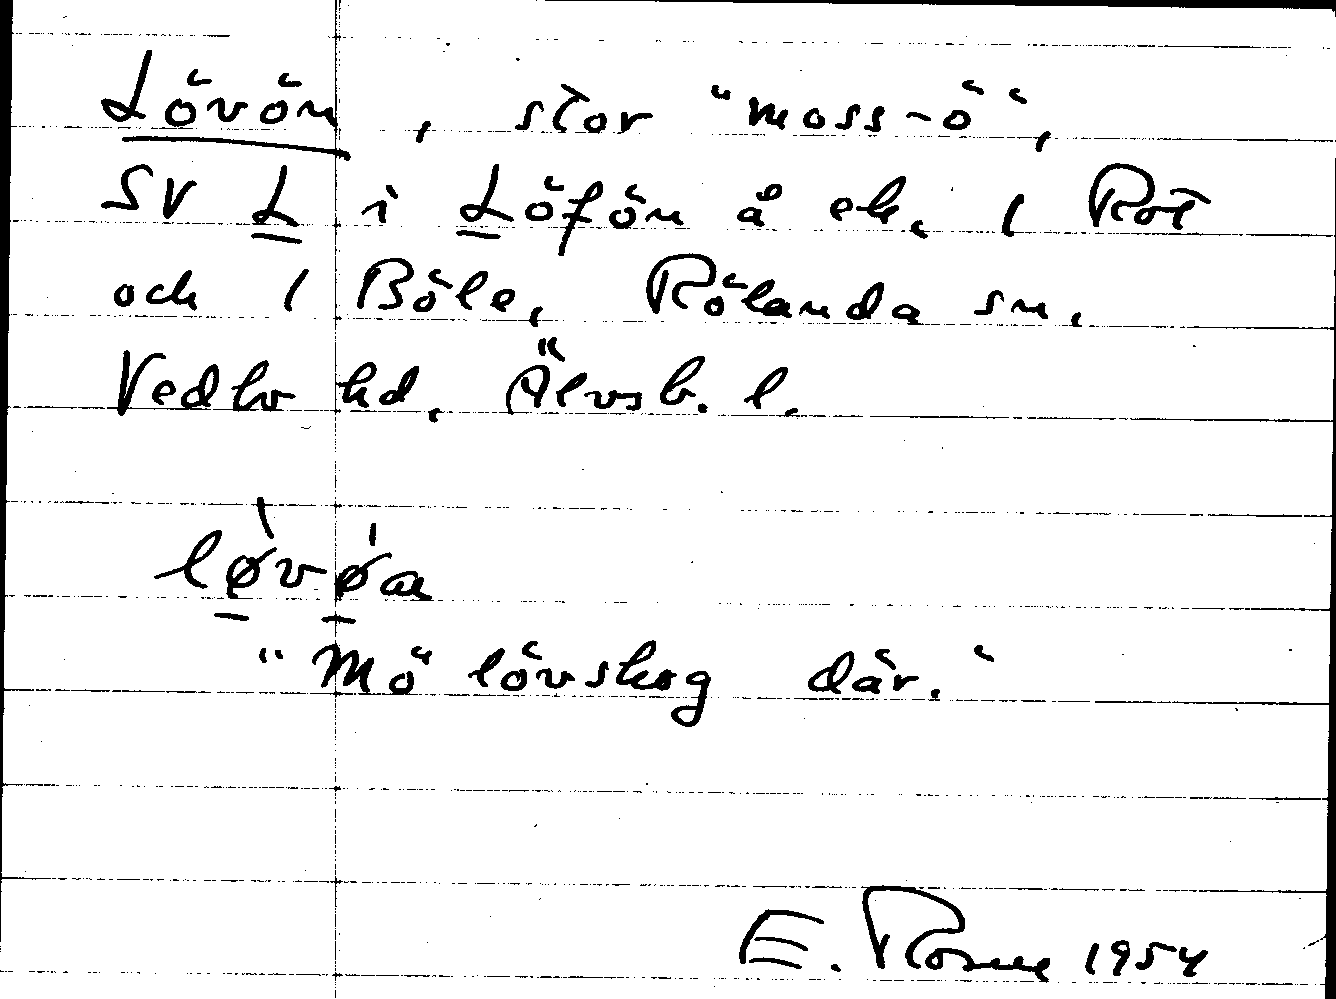 Lövön, stor "moss-ö",
SV L i Löfön å ek. 1 Röt
och 1 Böle, Rölanda sn.
Vedbo hd, Älvsb. l.
løvøa
"Mö lövskog där."
E. 1954